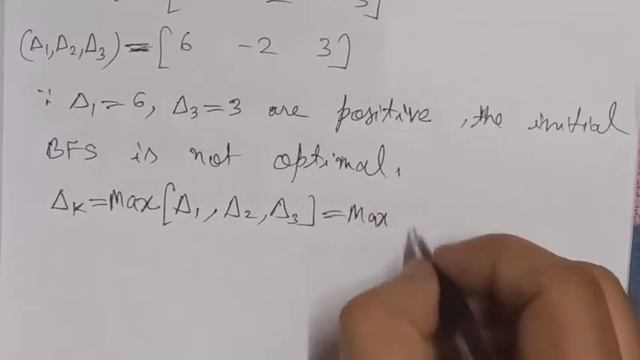 (Δ₁,Δ₂,Δ₃)=[6 -2 3]
∵ Δ₁=6, Δ₃=3 are positive, the initial
BFS is not optimal.
Δₖ=Max[Δ₁, Δ₂, Δ₃]=Max